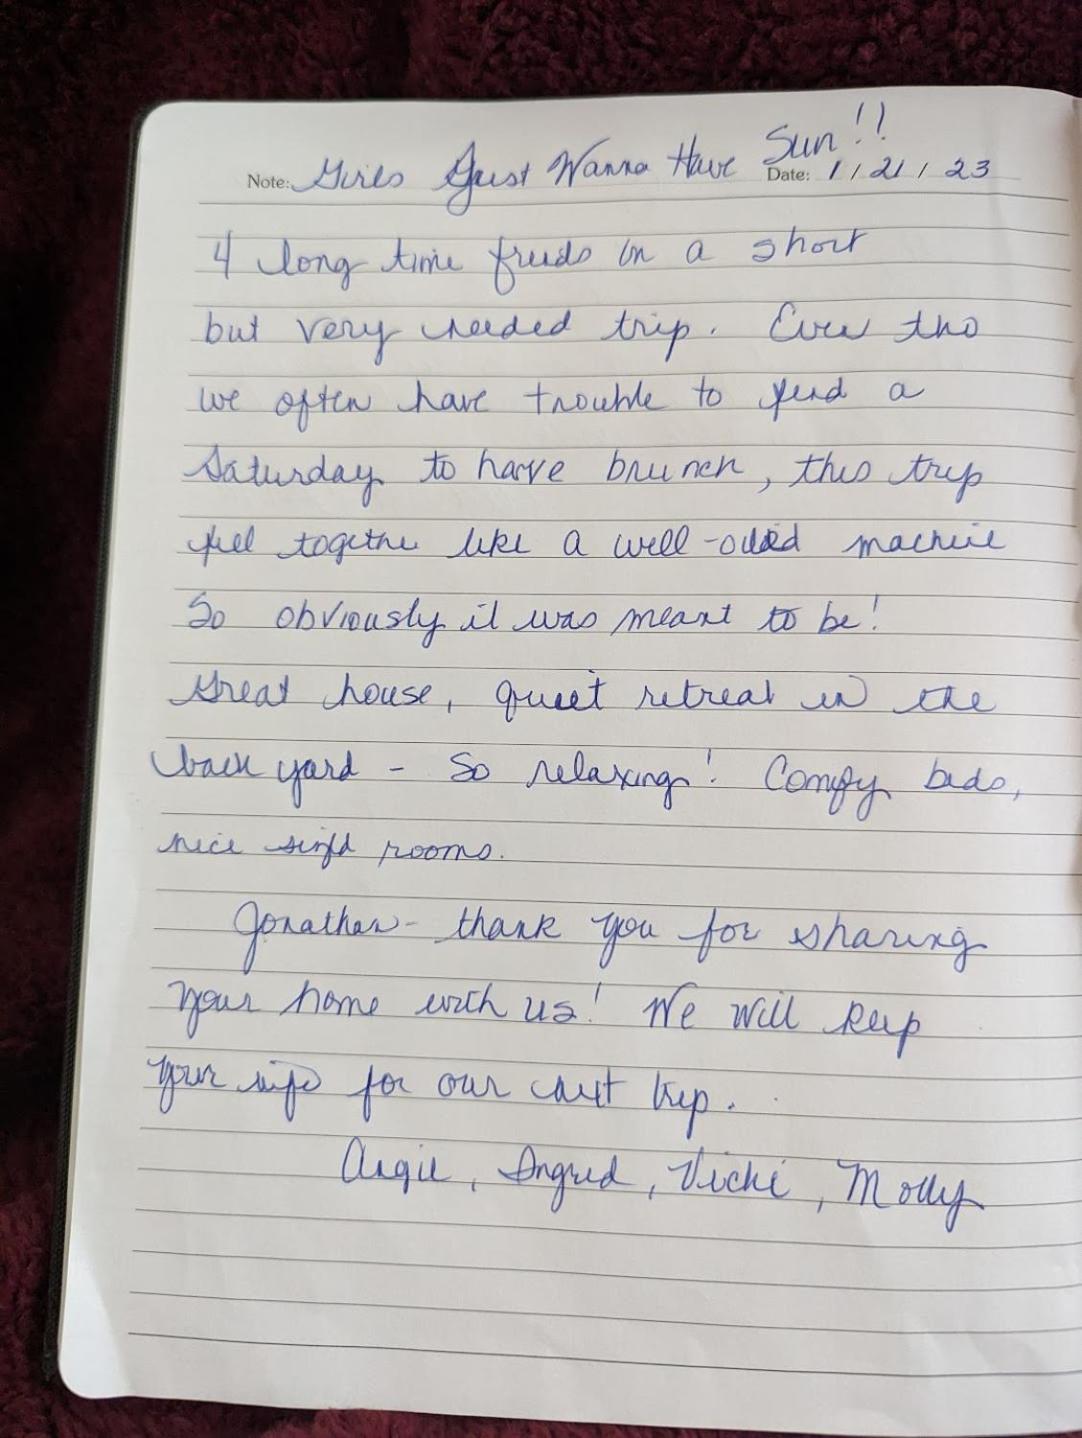 Note: Girls Just Wanna Have Sun!!
Date: 1/21/23
4 long time freids on a short
but very needed trip. Even tho
we often have trouble to find a
Saturday to have brunch, this trip
fell together like a well-oiled machine
So obviously it was meant to be!
Great house, quiet retreat in the
back yard - So relaxing! Comfy beds,
nice sized rooms.
Jonathan- thank you for sharing
your home with us! We will keep
your info for our next trip.
Angie, Ingrid, Vicki, Molly